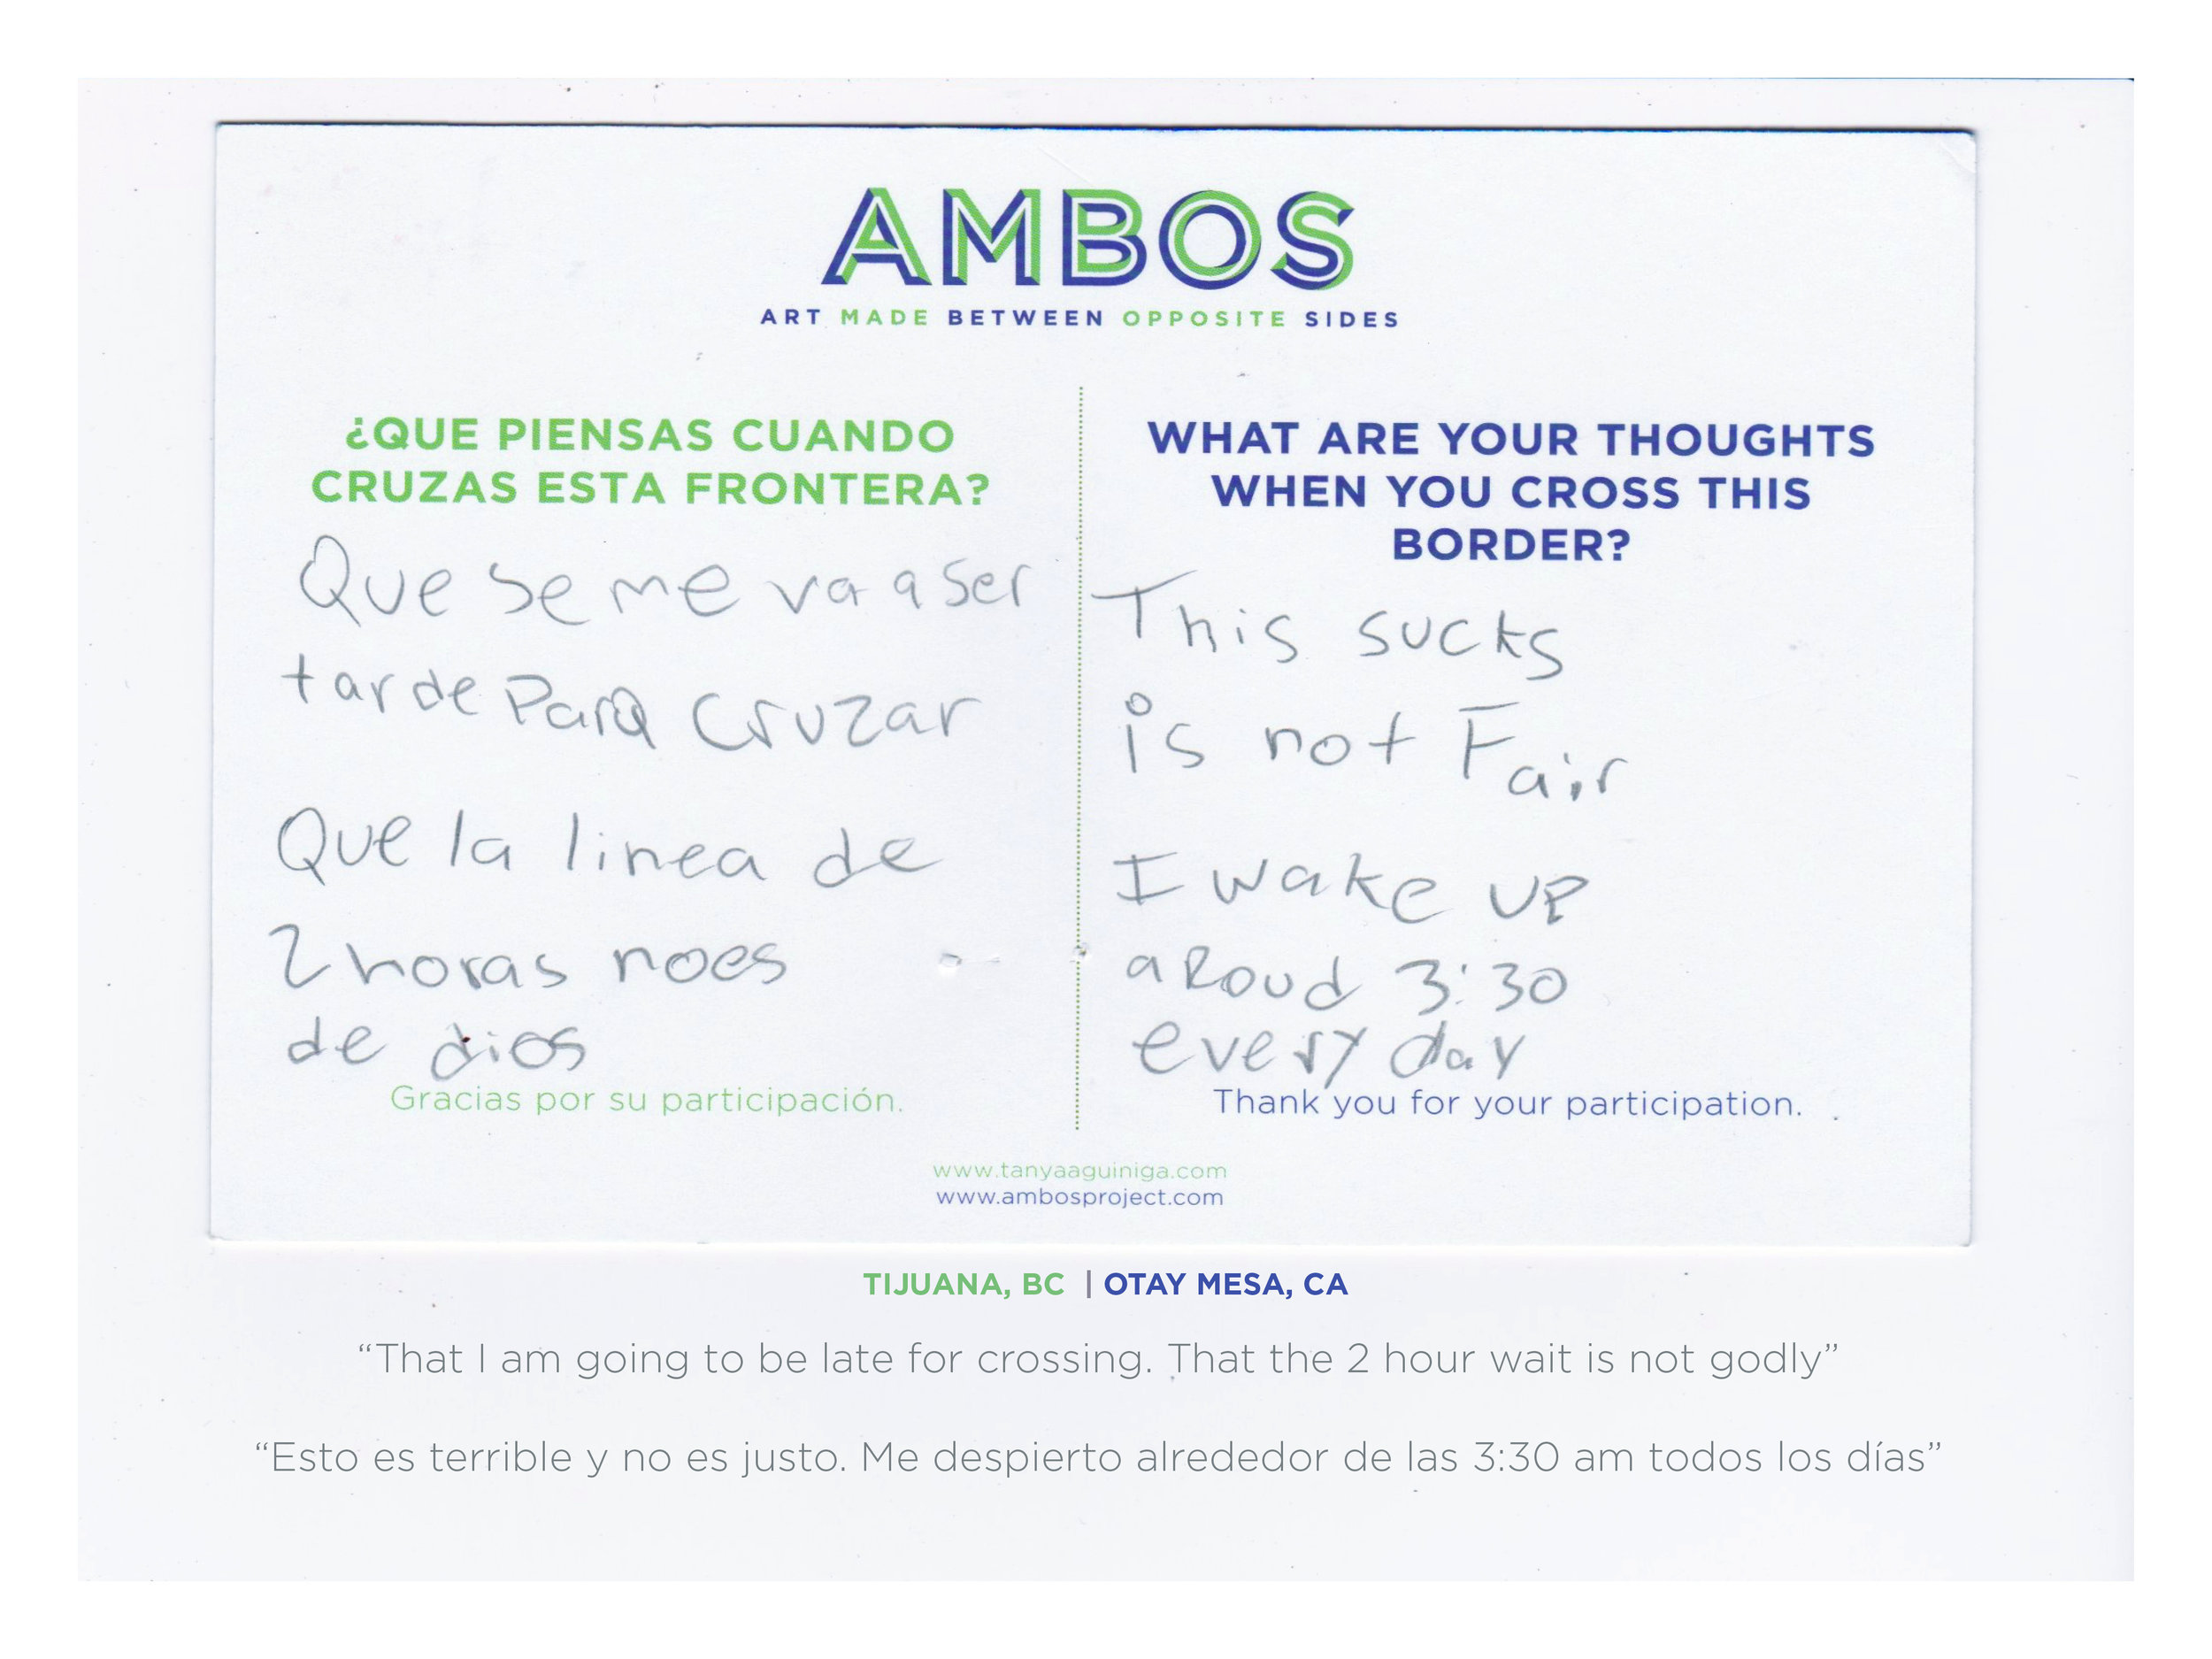 AMBOS
ART MADE BETWEEN OPPOSITE SIDES
¿QUE PIENSAS CUANDO
CRUZAS ESTA FRONTERA?
Que se me va a ser
tarde Para Cruzar
Que la linea de
2 horas noes
de dios
Gracias por su participación.
WHAT ARE YOUR THOUGHTS
WHEN YOU CROSS THIS
BORDER?
This sucks
is not Fair
I wake UP
aRoud 3:30
every day
Thank you for your participation.
www.tanyaaguiniga.com
www.ambosproject.com
TIJUANA, BC | OTAY MESA, CA
“That I am going to be late for crossing. That the 2 hour wait is not godly”
“Esto es terrible y no es justo. Me despierto alrededor de las 3:30 am todos los días”